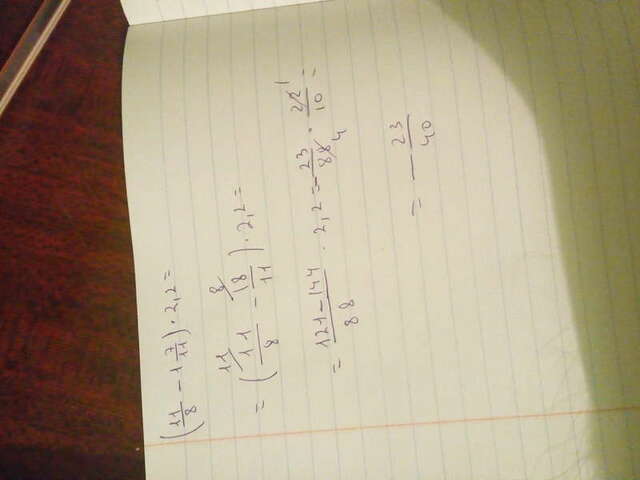 (11/8 - 1 7/11) · 2,2 =
= (11/8 - 18/11) · 2,2 =
= 121-144/88 · 2,2 = - 23/88 · 22/10 =
= - 23/40